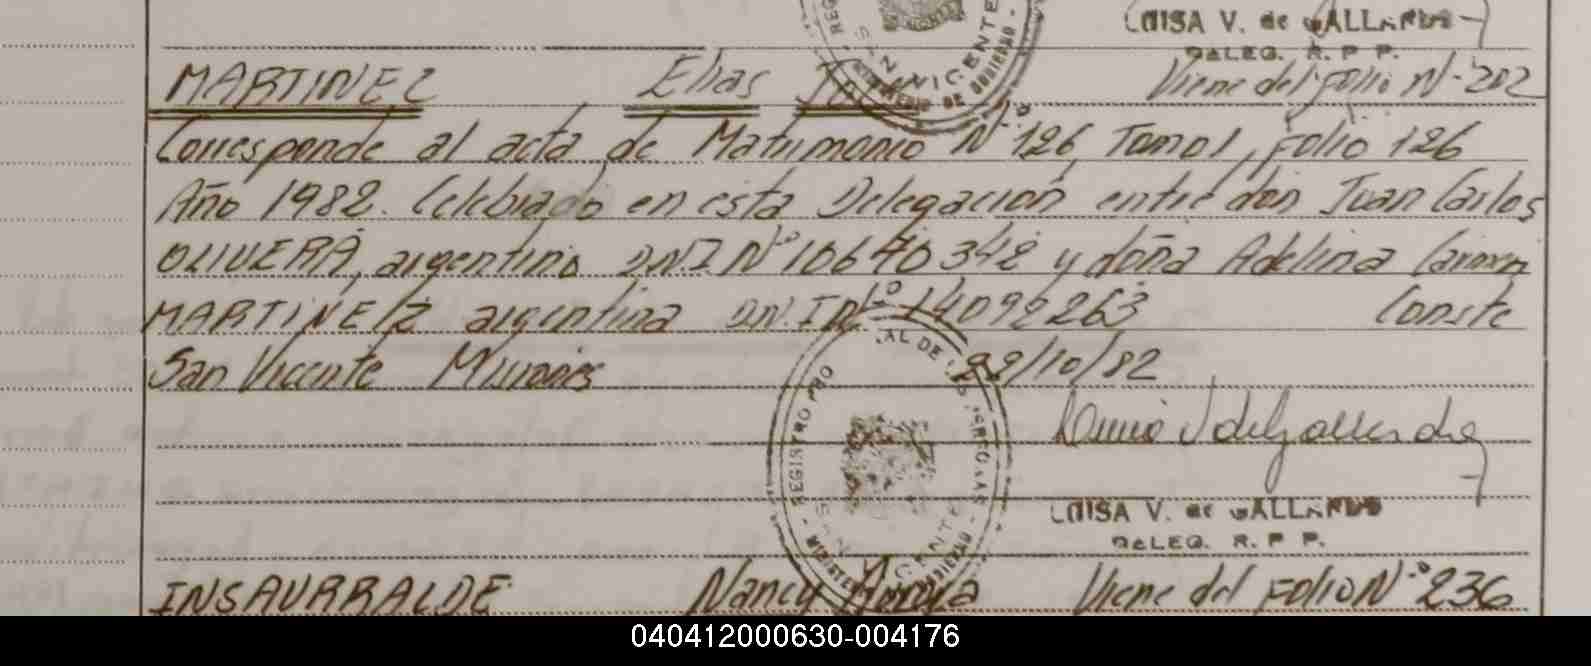 SAN VICENTE
MINISTERIO DE GOBIERNO
LUISA V. de GALLARDO
DELEG. R. P. P.
MARTINEZ Elias Viene del folio N- 202
Corresponde al acta de Matrimonio Nº 126, Tomo I, folio 126
Año 1982. Celebrado en esta Delegación entre don Juan Carlos
OLIVERA, argentino D.N.I. Nº 10640342 y doña Adelina
MARTINEZ argentina D.N.I Nº 14092263 Conste
San Vicente Misiones 22/10/82
REGISTRO PRO AL DE LAS PERSONAS
SAN VICENTE
MINISTERIO GOBIERNO
LUISA V. de GALLARDO
DELEG. R. P. P.
INSAURRALDE Nancy Viene del folio Nº 236
040412000630-004176